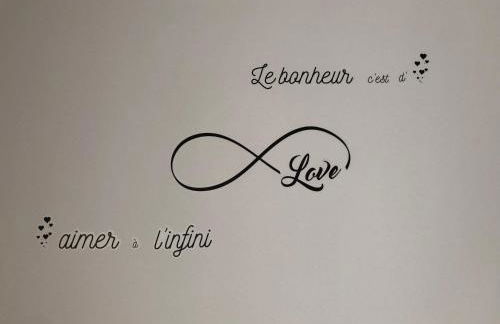 Le bonheur c'est d'
Love
aimer à l'infini